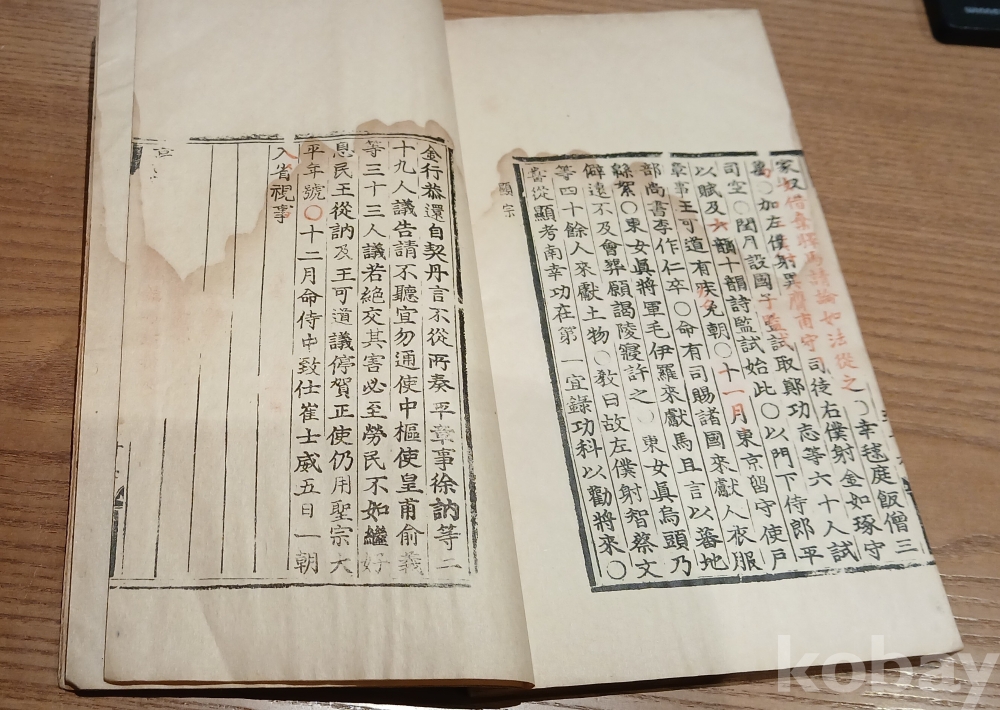 家奴借乘驛馬請論如法從之○幸毬庭飯僧三
萬○加左僕射異膺甫守司徒右僕射金如琢守
司空○閏月設國子監試取鄭功志等六十人試
以賦及六韻十韻詩監試始此○以門下侍郎平
章事王可道有疾免朝○十一月東京留守使戶
部尚書李作仁卒○命有司賜諸國來獻人衣服
緜絮○東女眞將軍毛伊羅來獻馬且言以蕃地
僻遠不及會葬願謁陵寢許之○東女眞烏頭乃
等四十餘人來獻土物○敎曰故左僕射智蔡文
嘗從顯考南幸功在第一宜錄功科以勸將來○
顯宗
金行恭還自契丹言不從所奏平章事徐訥等二
十九人議告請不聽宜勿通使中樞使皇甫俞義
等三十三人議若絶交其害必至勞民不如繼好
息民王從訥及王可道議停賀正使仍用聖宗大
平年號○十二月命侍中致仕崔士威五日一朝
入省視事
kobay